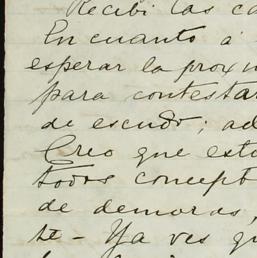 Recibi las ca
En cuanto á
esperar la prox
para contestar
de escudo; ad
Creo que est
todos concept
de demoras,
te - Ya ves qu